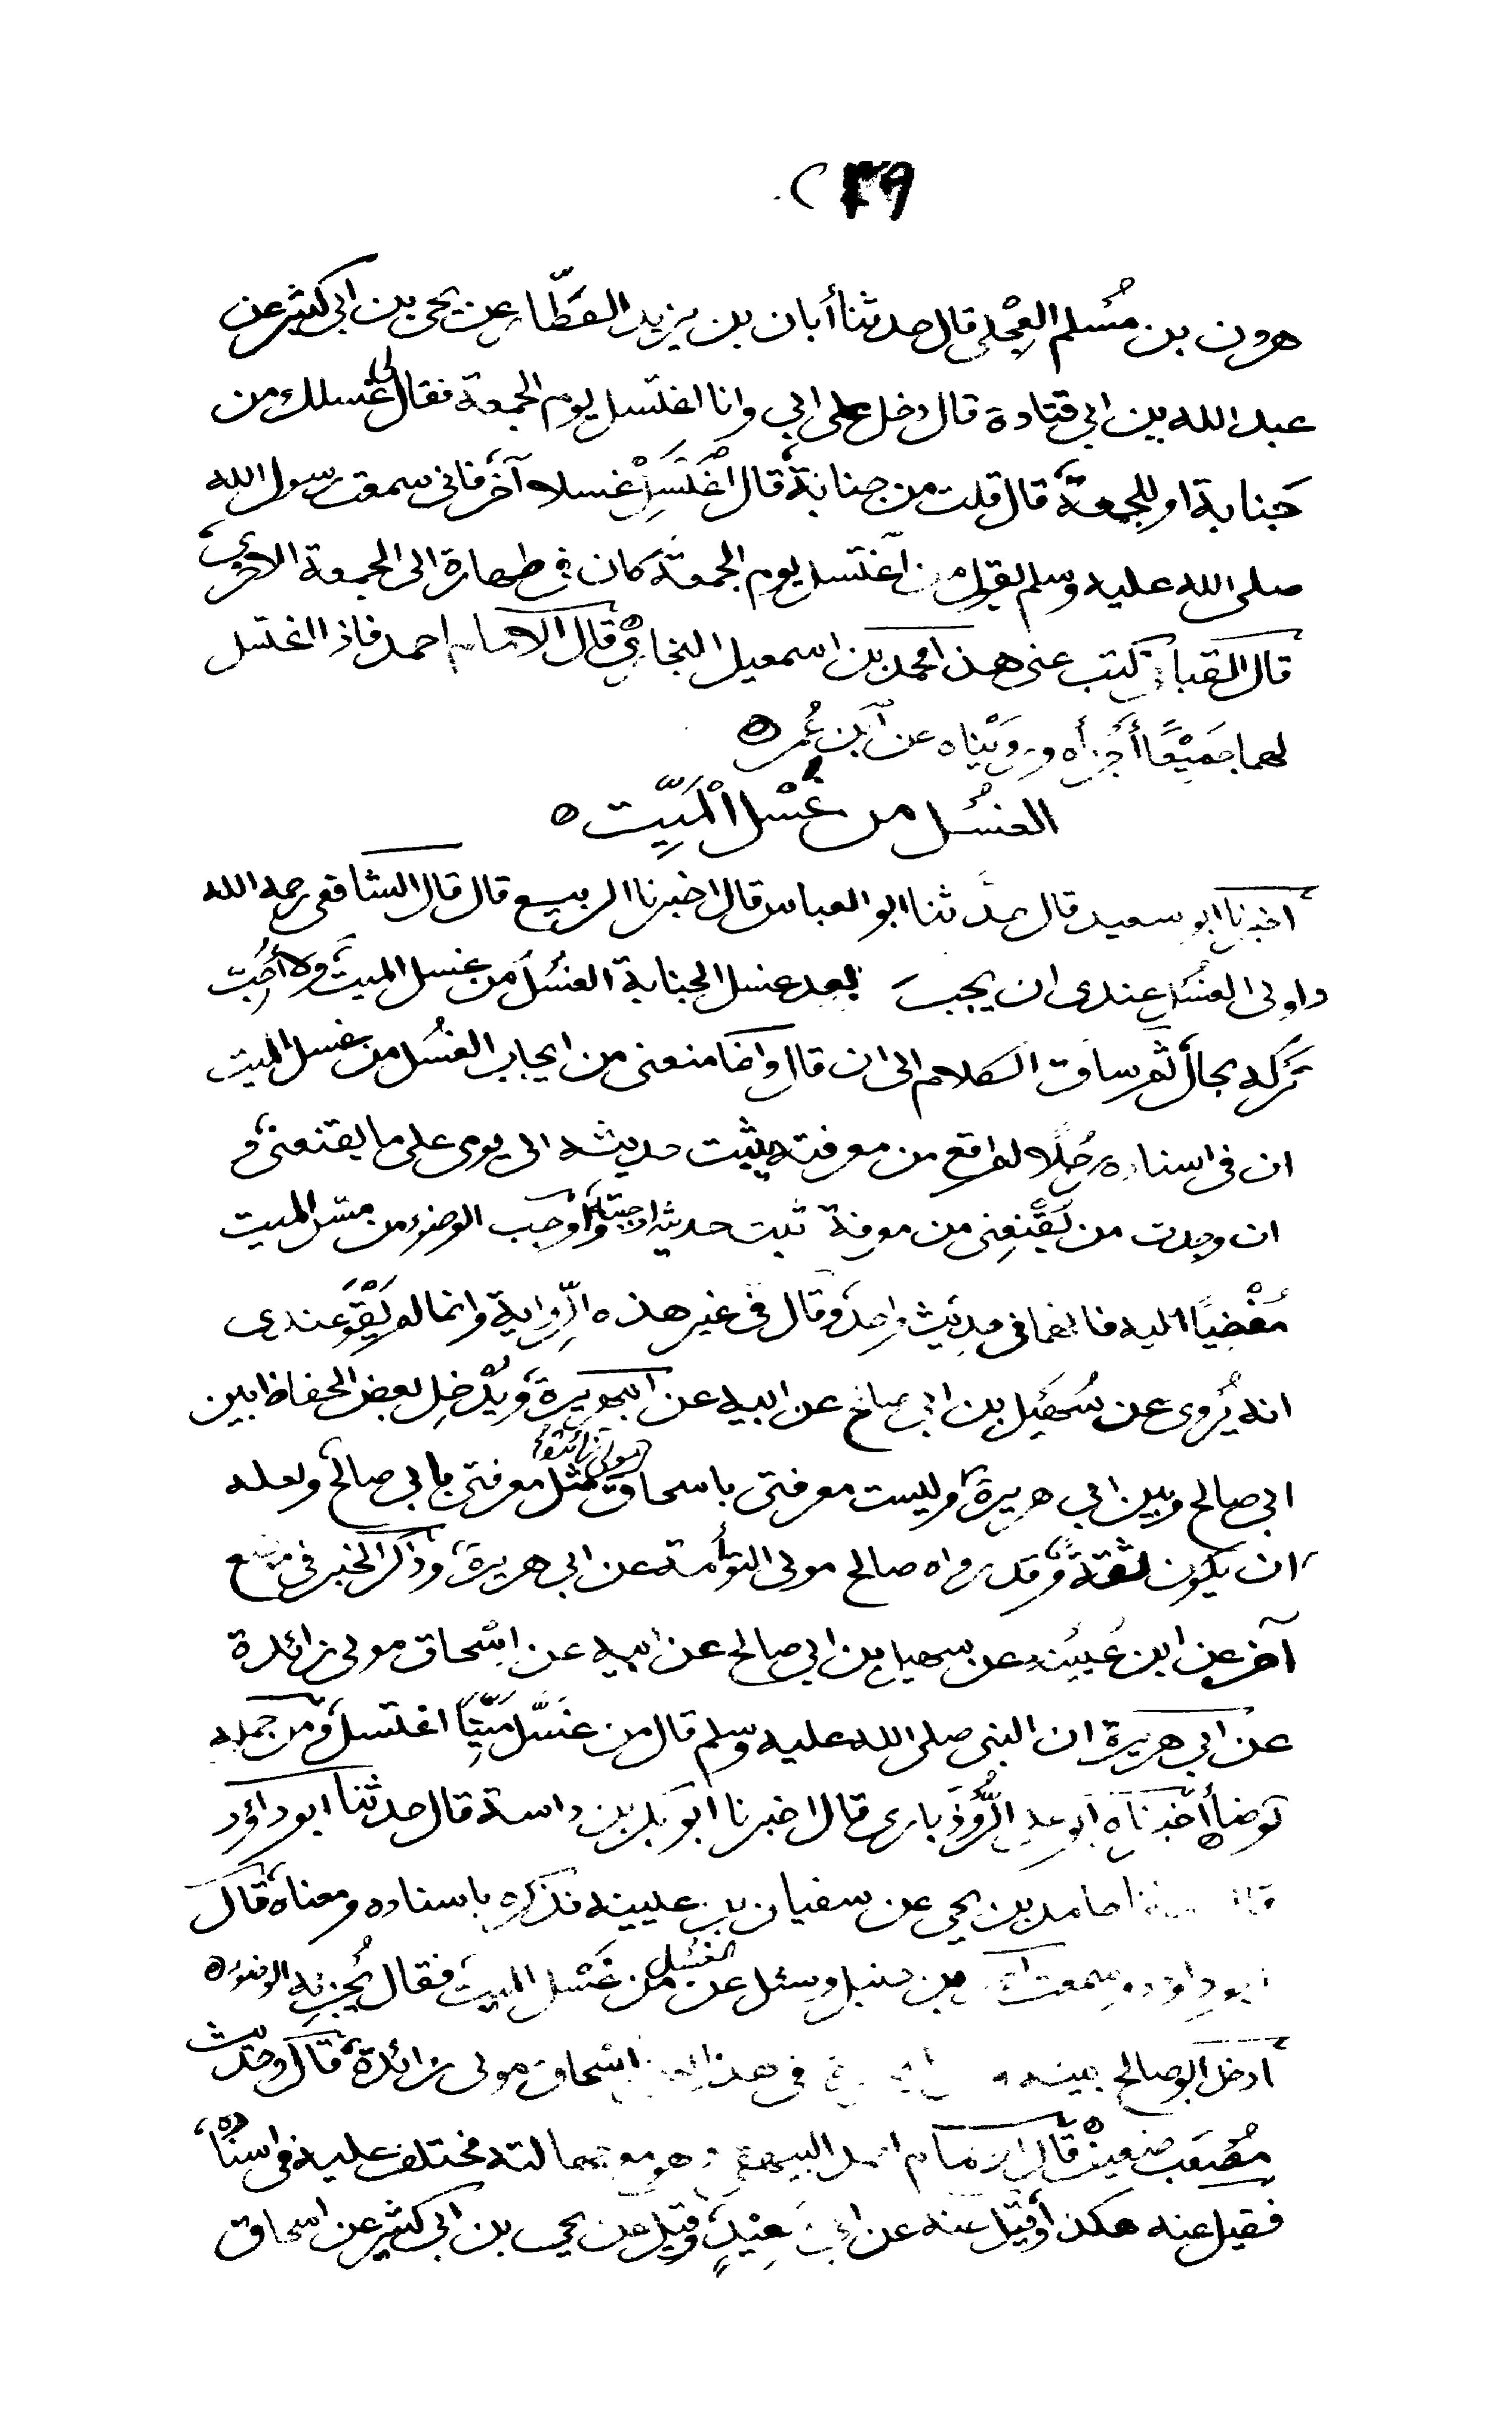 ٣٩
هرون بن مُسلم العِجْلي قال حدثنا أبان بن يزيد العَطّار عن يحي بن ابي كثير عن
عبد الله بن ابي قتادة قال دخل على ابي وانا اغتسل يوم الجمعة فقال لي غسلك من
جَنابة او للجمعة قال قلت من جنابة قال اغْتَسِلْ غسلا آخر فاني سمعت رسول الله
صلى الله عليه وسلم يقول من اغتسل يوم الجمعة كان في طهارة الى الجمعة الاخرى
قال القباني كتب عني هذا محمد بن اسمعيل البخاري قال الامام احمد فاذا اغتسل
لهما جَمِيْعًا أجزأه ورويْناه عن ابن عُمر ه
الغسُل من غُسْل الْمَيِّت ه
اخبرنا ابو سعيد قال حدثنا ابو العباس قال اخبرنا الربيع قال قال الشافعي رحمه الله
واولى الغسُل عندى ان يجبَ بعد غسل الجنابة الغسُل من غسل الميت ولا أُحِبّ
تركه بحال ثم ساق الكلام الى ان قال وانما منعني من ايجاب الغسُل من غسل الميت
ان في اسناده رجُلًا لم اقع من معرفته يثبت حديثه الى يومى على ما يقنعني و
ان وجدت من يَقنعِني من معرفة ثبت حديثه اوجبته وأوجب الوضوء من مسّ الميت
مُفْضِيًا اليه فانهما في حديث واحد وقال في غير هذه الرِّواية وانما لم يَقْوَ عندى
انه يُروى عن سُهَيْل بن ابي صالح عن ابيه عن ابي هريرة ويُدْخِل بعض الحفاظ بين
ابي صالح وبين ابي هريرة وليست معرفتي باسحاق مولى زائدة مثل معرفتي بابي صالح ولعله
ان يكون ثقة وقد رواه صالح مولى التوأمة عن ابي هريرة وذكر الخبر في موضع
آخر عن ابن عُيَيْنة عن سهيل بن ابي صالح عن ابيه عن اسْحاق مولى زائدة
عن ابي هريرة ان النبي صلى الله عليه وسلم قال من غَسَّل مَيِّتًا اغتسل ومن حمله
توضأ أخبرناه ابو علي الرُّوْذَبارى قال اخبرنا ابو بكر بن داسة قال حدثنا ابو داؤد
قال حدثنا حامد بن يحي عن سفيان بن عيينه فذكره باسناده ومعناه قال
ابو داؤد وسمعت احمد بن حنبل وسئل عن الغسُل من غَسْل الميت فقال يُجزيه الوضوء ه
ادخل ابو صالح بينه في هذا اسْحاق مولى زائدة قال وحديث
مُصْعَب ضعيف قال الامام احمد البيهقي وهو مع جهالته مختلف عليه في اسناده
فقيل عنه هكذا وقيل عنه عن ابي سَعِيْدٍ وقيل عن يحيى بن ابي كثير عن اسحاق